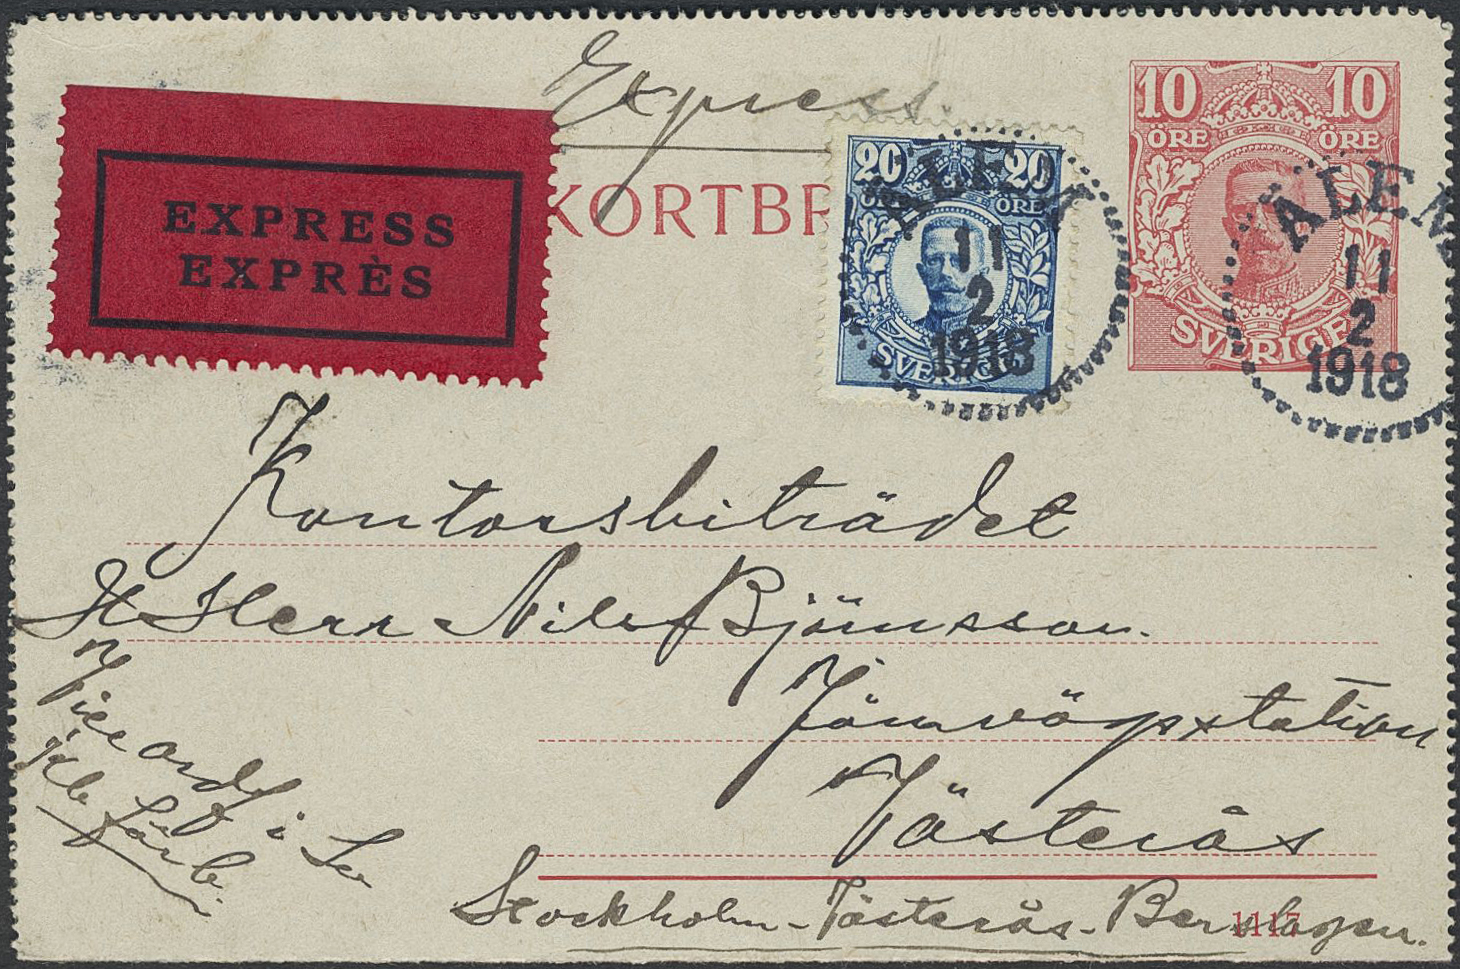 Express.
EXPRESS
EXPRÈS
KORTBR
20 20
ÖRE ÖRE
SVERIGE
11
2
1918
10 10
ÖRE ÖRE
SVERIGE
ÄLEN
11
2
1918
Kontorsbiträdet
Herr Nils Björnsson.
Järnvägsstation
Västerås
Stockholm-Västerås-Berslagen.
1117